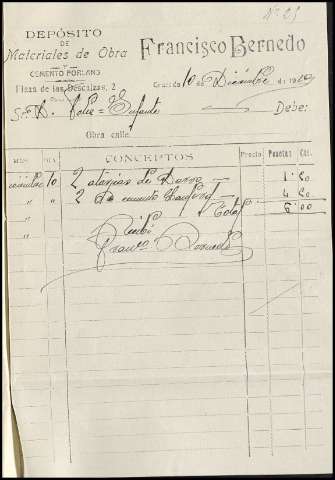 Nº 25
DEPÓSITO
DE
Materiales de Obra
Y
CEMENTO PORLAND
Plaza de las Descalzas, 2
Francisco Bernedo
Granada 10 de Diciembre de 19
Sr. D.
Debe:
Obra calle
MES DIA CONCEPTOS Precio Pesetas Cts.
Diciembre 10 2 de Barro 1'20
" " 2 de cemento 4 80
" " Total 6'00
Recibí
Franco Bernedo